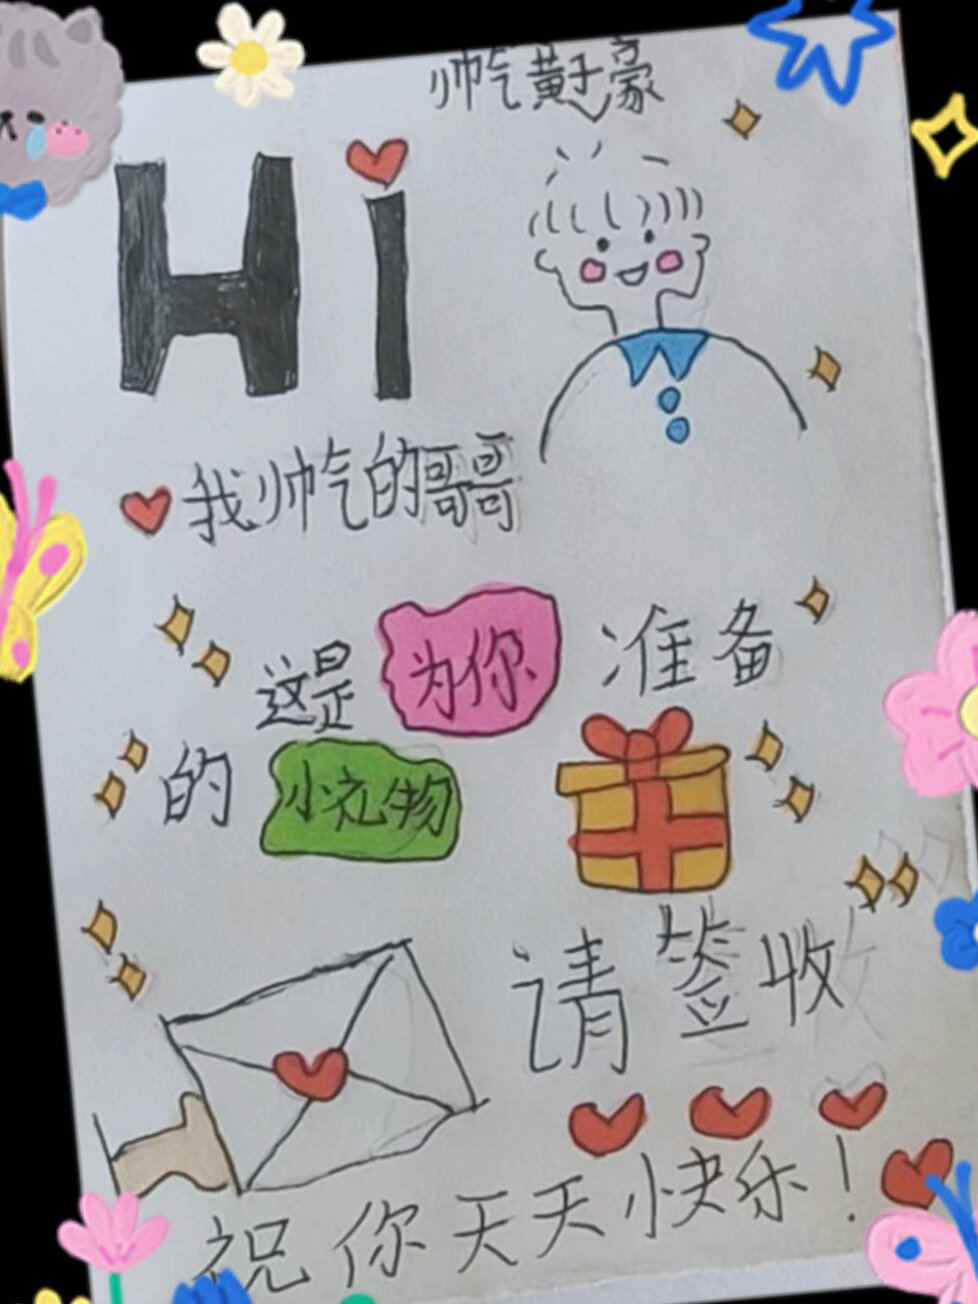 帅气黄子豪
Hi
我帅气的哥哥
这是为你准备
的小礼物
请签收
祝你天天快乐！